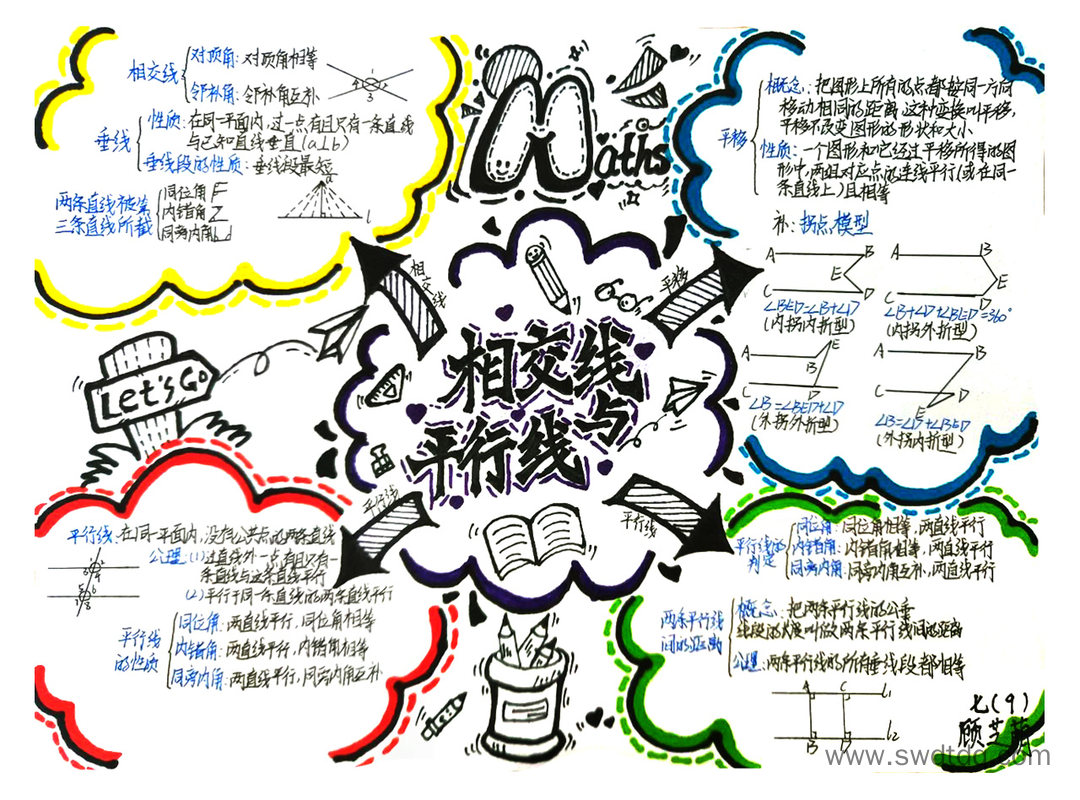 相交线
对顶角: 对顶角相等
邻补角: 邻补角互补
4
3
垂线
性质: 在同一平面内, 过一点有且只有一条直线
与已知直线垂直(a⊥b)
垂线段的性质: 垂线段最短
a
l
两条直线被第
三条直线所截
同位角 F
内错角 Z
同旁内角 U
Maths
平移
概念: 把图形上所有的点都按同一方向
移动相同的距离, 这种变换叫平移,
平移不改变图形的形状和大小
性质: 一个图形和它经过平移所得的图
形中, 两组对应点的连线平行(或在同一
条直线上)且相等
补: 拐点模型
A B
E
C D
∠BED=∠B+∠D
(内拐内折型)
A B
E
C D
∠B+∠D+∠BED=360°
(内拐外折型)
A B E
C D
∠B=∠BED+∠D
(外拐外折型)
A B
C D
E
∠B=∠D+∠BED
(外拐内折型)
相交线
平移
平行线
平行线
相交线
与
平行线
Let's Go
平行线: 在同一平面内, 没有公共点的两条直线
公理 (1)过直线外一点有且只有一
条直线与这条直线平行
(2)平行于同一条直线的两条直线平行
平行线
的性质
同位角: 两直线平行, 同位角相等
内错角: 两直线平行, 内错角相等
同旁内角: 两直线平行, 同旁内角互补
平行线的
判定
同位角: 同位角相等, 两直线平行
内错角: 内错角相等, 两直线平行
同旁内角: 同旁内角互补, 两直线平行
两条平行线
间的距离
概念: 把两条平行线的公垂
线段的长度叫做两条平行线间的距离
公理: 两条平行线的所有垂线段都相等
A C l1
B D l2
七(9)
顾芝萌
www.swdtdq.com